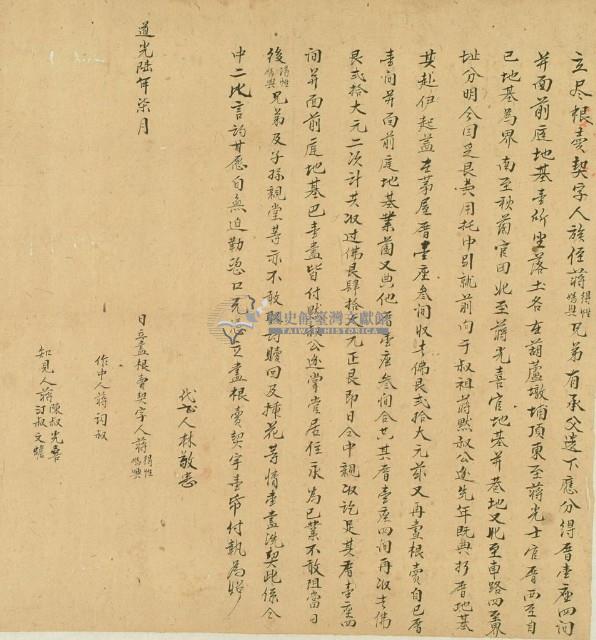 立尽根賣契字人族侄蔣得性為與兄弟有承父遺下應分得厝壹座四间
并面前庭地基壹所坐落土名在葫蘆墩埔頂東至蔣光士官厝西至自
已地基為界南至秋蘭官田北至蔣光喜官地基并巷地又北至車路四至界
址分明今因乏艮費用托中引就前向于叔祖蔣熬叔公邊先年既典朽厝地基
其赴伊起蓋在茅屋厝壹座叁间收去佛艮弍拾大元茲又再盡根賣自已厝
壹间并面前庭地基業蔔又典他厝壹座叁间合共其厝壹座四间再收去佛
艮弍拾大元二次計共收过佛艮肆拾大元正艮即日仝中親收訖足其厝壹座四
间并面前庭地基已壹盡皆付熬叔公邊掌管居住永為已業不敢阻當日
後得性為與兄弟及子孫親堂等亦不敢取言贖回及揷花等情壹盡洗契此係仝
中二比言約甘愿自無迫勒恐口无凴立盡根賣契字壹帋付執為炤
代書人林敬志
日立盡根賣契字人蔣得性為與
作中人蔣詞叔
知見人蔣陳叔光喜汀叔文雄
道光陸年柒月
國史館臺灣文獻館
TAIWAN HISTORICA